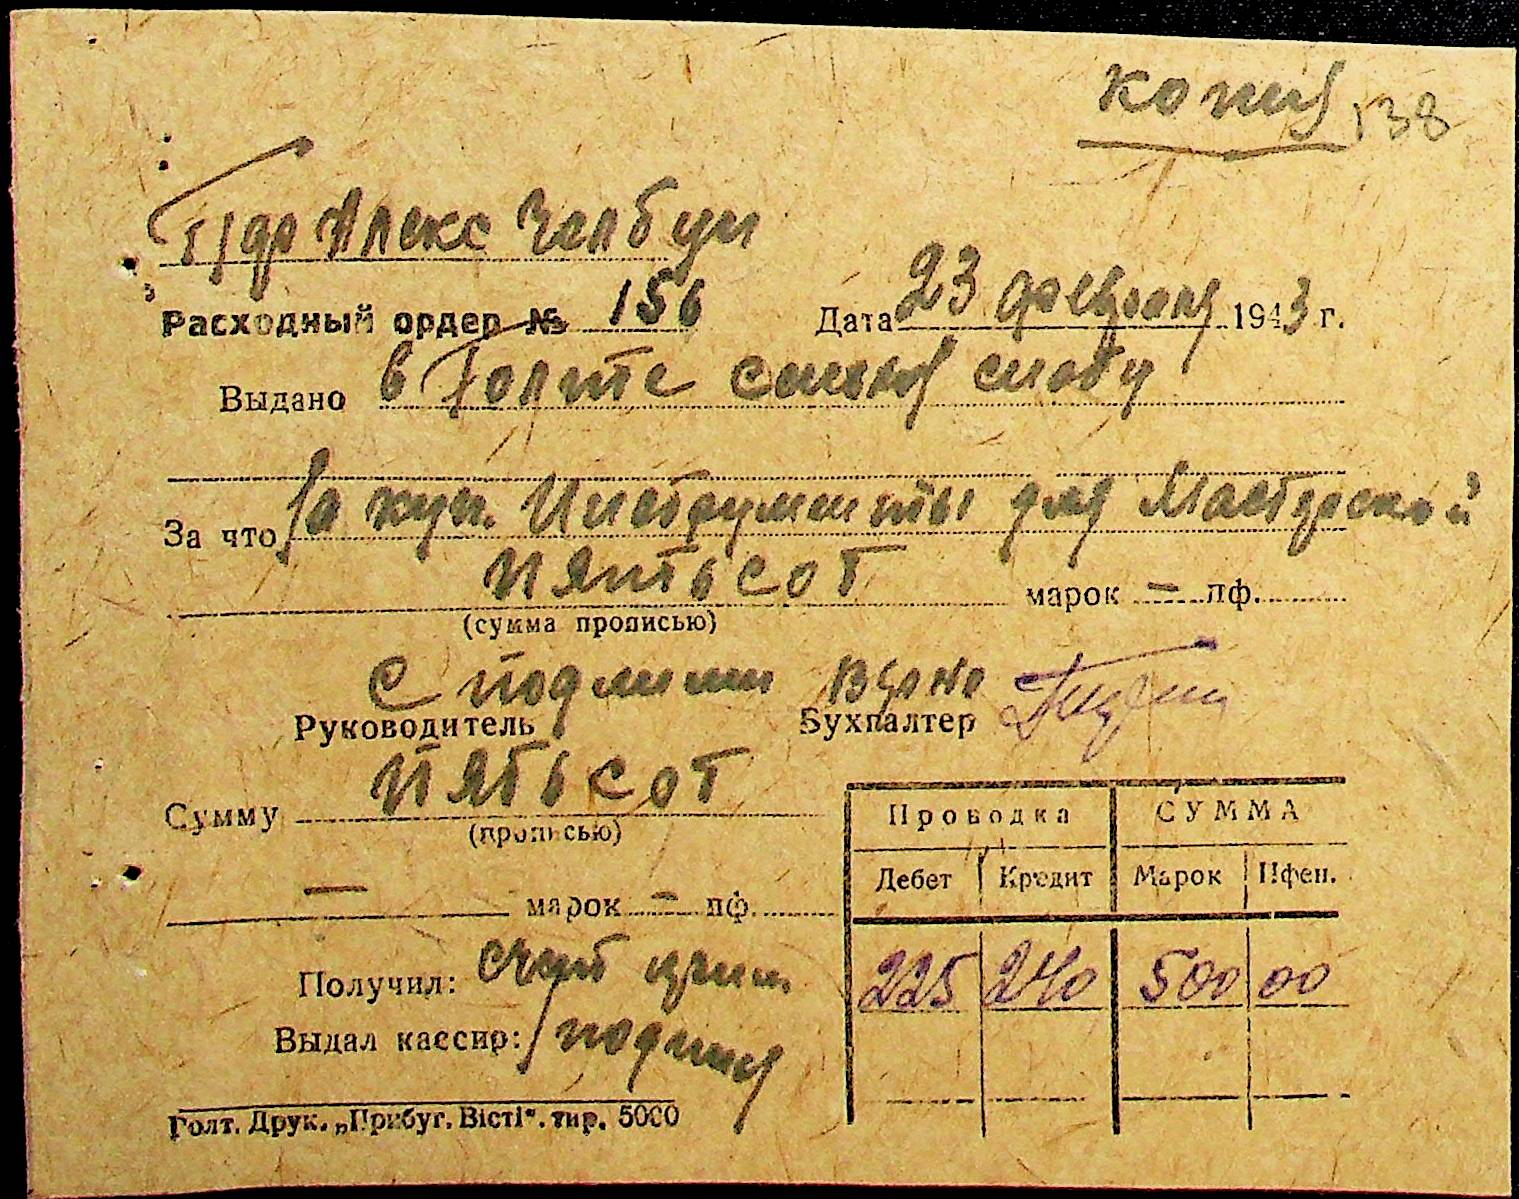 копия 138
Алекс
Расходный ордер № 156 Дата 23 февраля 1943 г.
Выдано в Голте
За что За куп. Инструменты для Мастерской
Пятьсот марок — пф.
(сумма прописью)
С подлинн Верно
Руководитель Бухгалтер
Сумму Пятьсот
(прописью)
— марок — пф.
Проводка СУММА
Дебет Кредит Марок Пфен.
225 240 500 00
Получил: счет
Выдал кассир: подпись
Голт. Друк. „Прибуг. Вісті“. тир. 5000